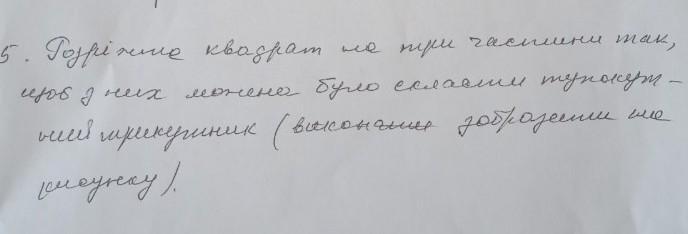 5. Розріжте квадрат на три частини так,
щоб з них можна було скласти тупокут-
ний трикутник (виконати зобразити на
рисунку).